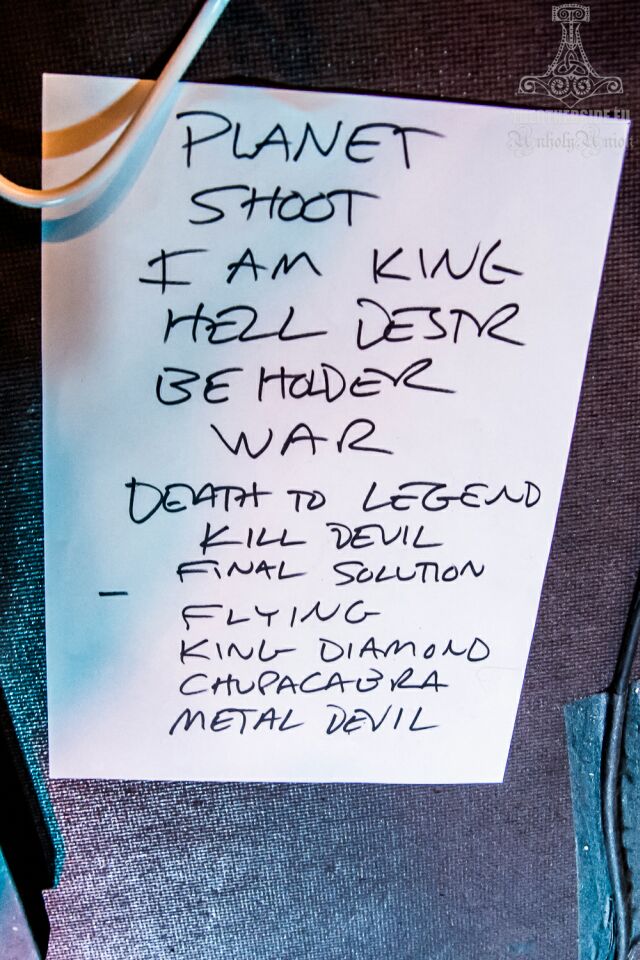 UnholyUnion
PLANET
SHOOT
I AM KING
HELL DESTR
BEHOLDER
WAR
DEATH TO LEGEND
KILL DEVIL
FINAL SOLUTION
- FLYING
KING DIAMOND
CHUPACABRA
METAL DEVIL